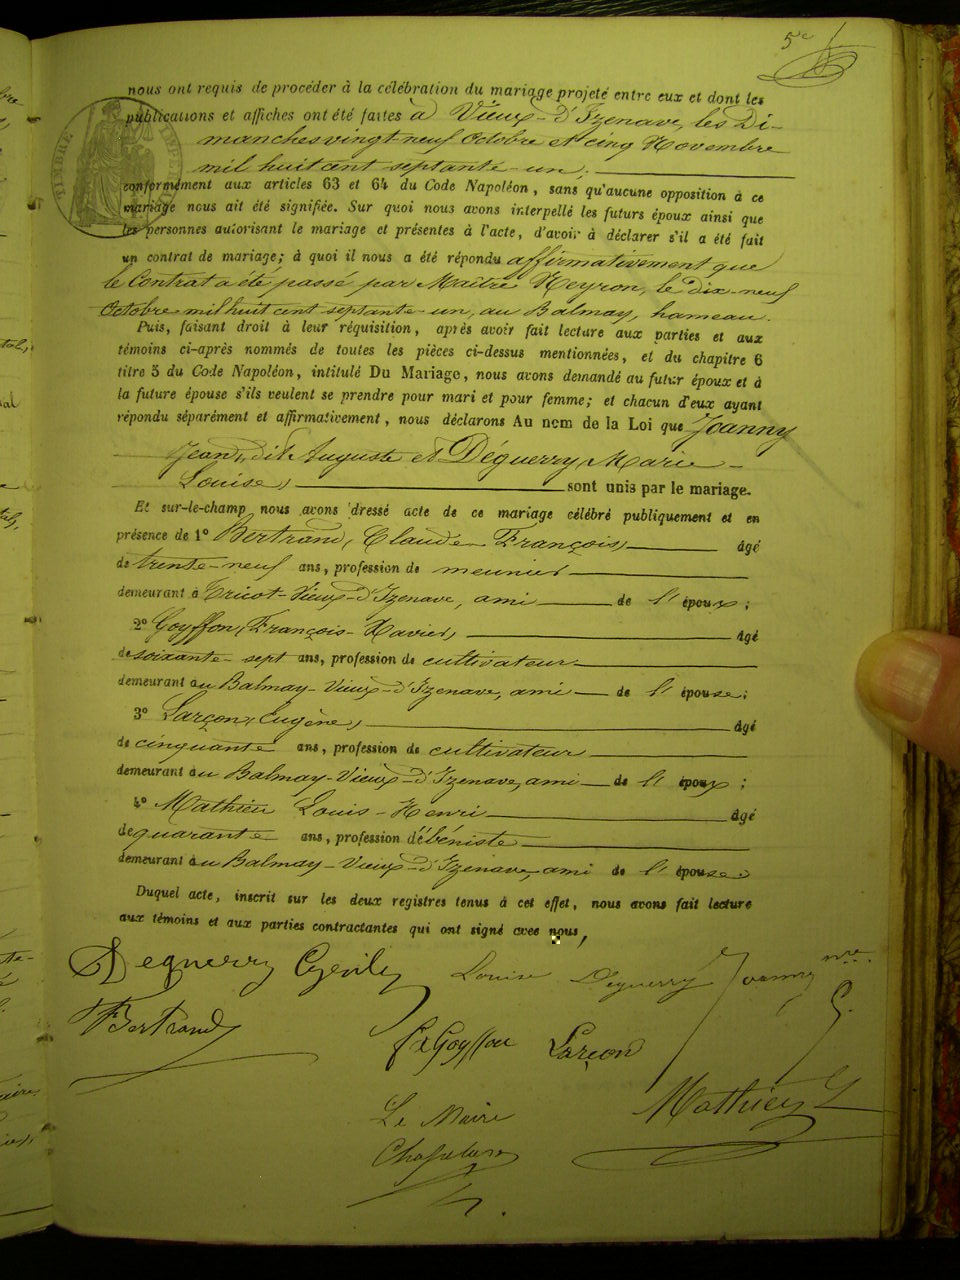 5e
nous ont requis de procéder à la célébration du mariage projeté entre eux et dont les
publications et affiches ont été faites à Vieux-d'Izenave, les Di-
manches vingt-neuf Octobre et cinq Novembre
mil huit cent septante-un,
conformément aux articles 63 et 64 du Code Napoléon, sans qu'aucune opposition à ce
mariage nous ait été signifiée. Sur quoi nous avons interpellé les futurs époux ainsi que
les personnes autorisant le mariage et présentes à l'acte, d'avoir à déclarer s'il a été fait
un contrat de mariage; à quoi il nous a été répondu affirmativement que
le Contrat a été passé par Maître Neyron, le dix-neuf
Octobre mil huit cent septante-un, au Balmay, hameau.
Puis, faisant droit à leur réquisition, après avoir fait lecture aux parties et aux
témoins ci-après nommés de toutes les pièces ci-dessus mentionnées, et du chapitre 6
titre 5 du Code Napoléon, intitulé Du Mariage, nous avons demandé au futur époux et à
la future épouse s'ils veulent se prendre pour mari et pour femme; et chacun d'eux ayant
répondu séparément et affirmativement, nous déclarons Au nom de la Loi que Joanny
Jean, dit Auguste et Déguerry, Marie-
Louise, sont unis par le mariage.
Et sur-le-champ nous avons dressé acte de ce mariage célébré publiquement et en
présence de 1º Bertrand, Claude-François, âgé
de trente-neuf ans, profession de meunier
demeurant à Tricot-Vieux-d'Izenave, ami de l'époux;
2º Goyffon, François-Xavier, âgé
de soixante-sept ans, profession de cultivateur
demeurant au Balmay-Vieux-d'Izenave, ami de l'épouse;
3º Larçon, Eugène, âgé
de cinquante ans, profession de cultivateur
demeurant au Balmay-Vieux-d'Izenave, ami de l'époux;
4º Mathieu Louis-Henri âgé
de quarante ans, profession d'ébéniste
demeurant au Balmay-Vieux-d'Izenave, ami de l'épouse
Duquel acte, inscrit sur les deux registres tenus à cet effet, nous avons fait lecture
aux témoins et aux parties contractantes qui ont signé avec nous,
Deguerry Louise Deguerry Joanny
Bertrand
fx Goyffon Larçon
Mathieu
Le Maire
TIMBRE